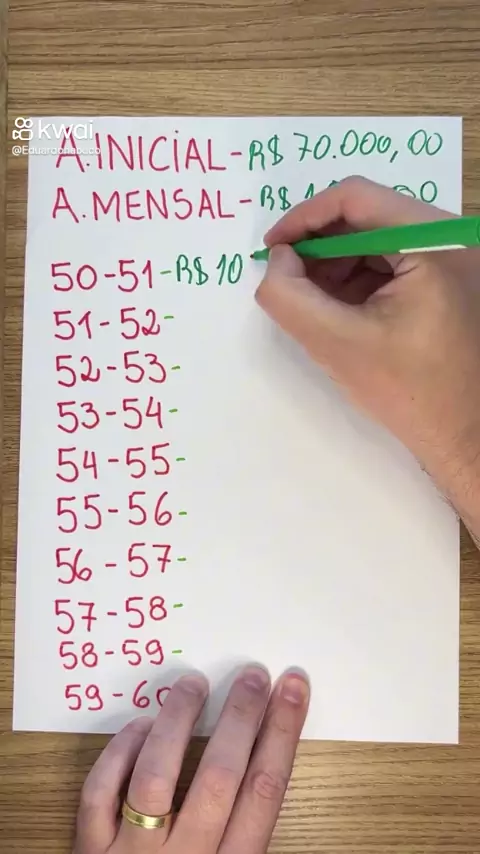 kwai
@Eduardonabuco
A.INICIAL-R$ 70.000,00
A.MENSAL-R$
50-51-R$ 10
51-52-
52-53-
53-54-
54-55-
55-56-
56-57-
57-58-
58-59-
59-60